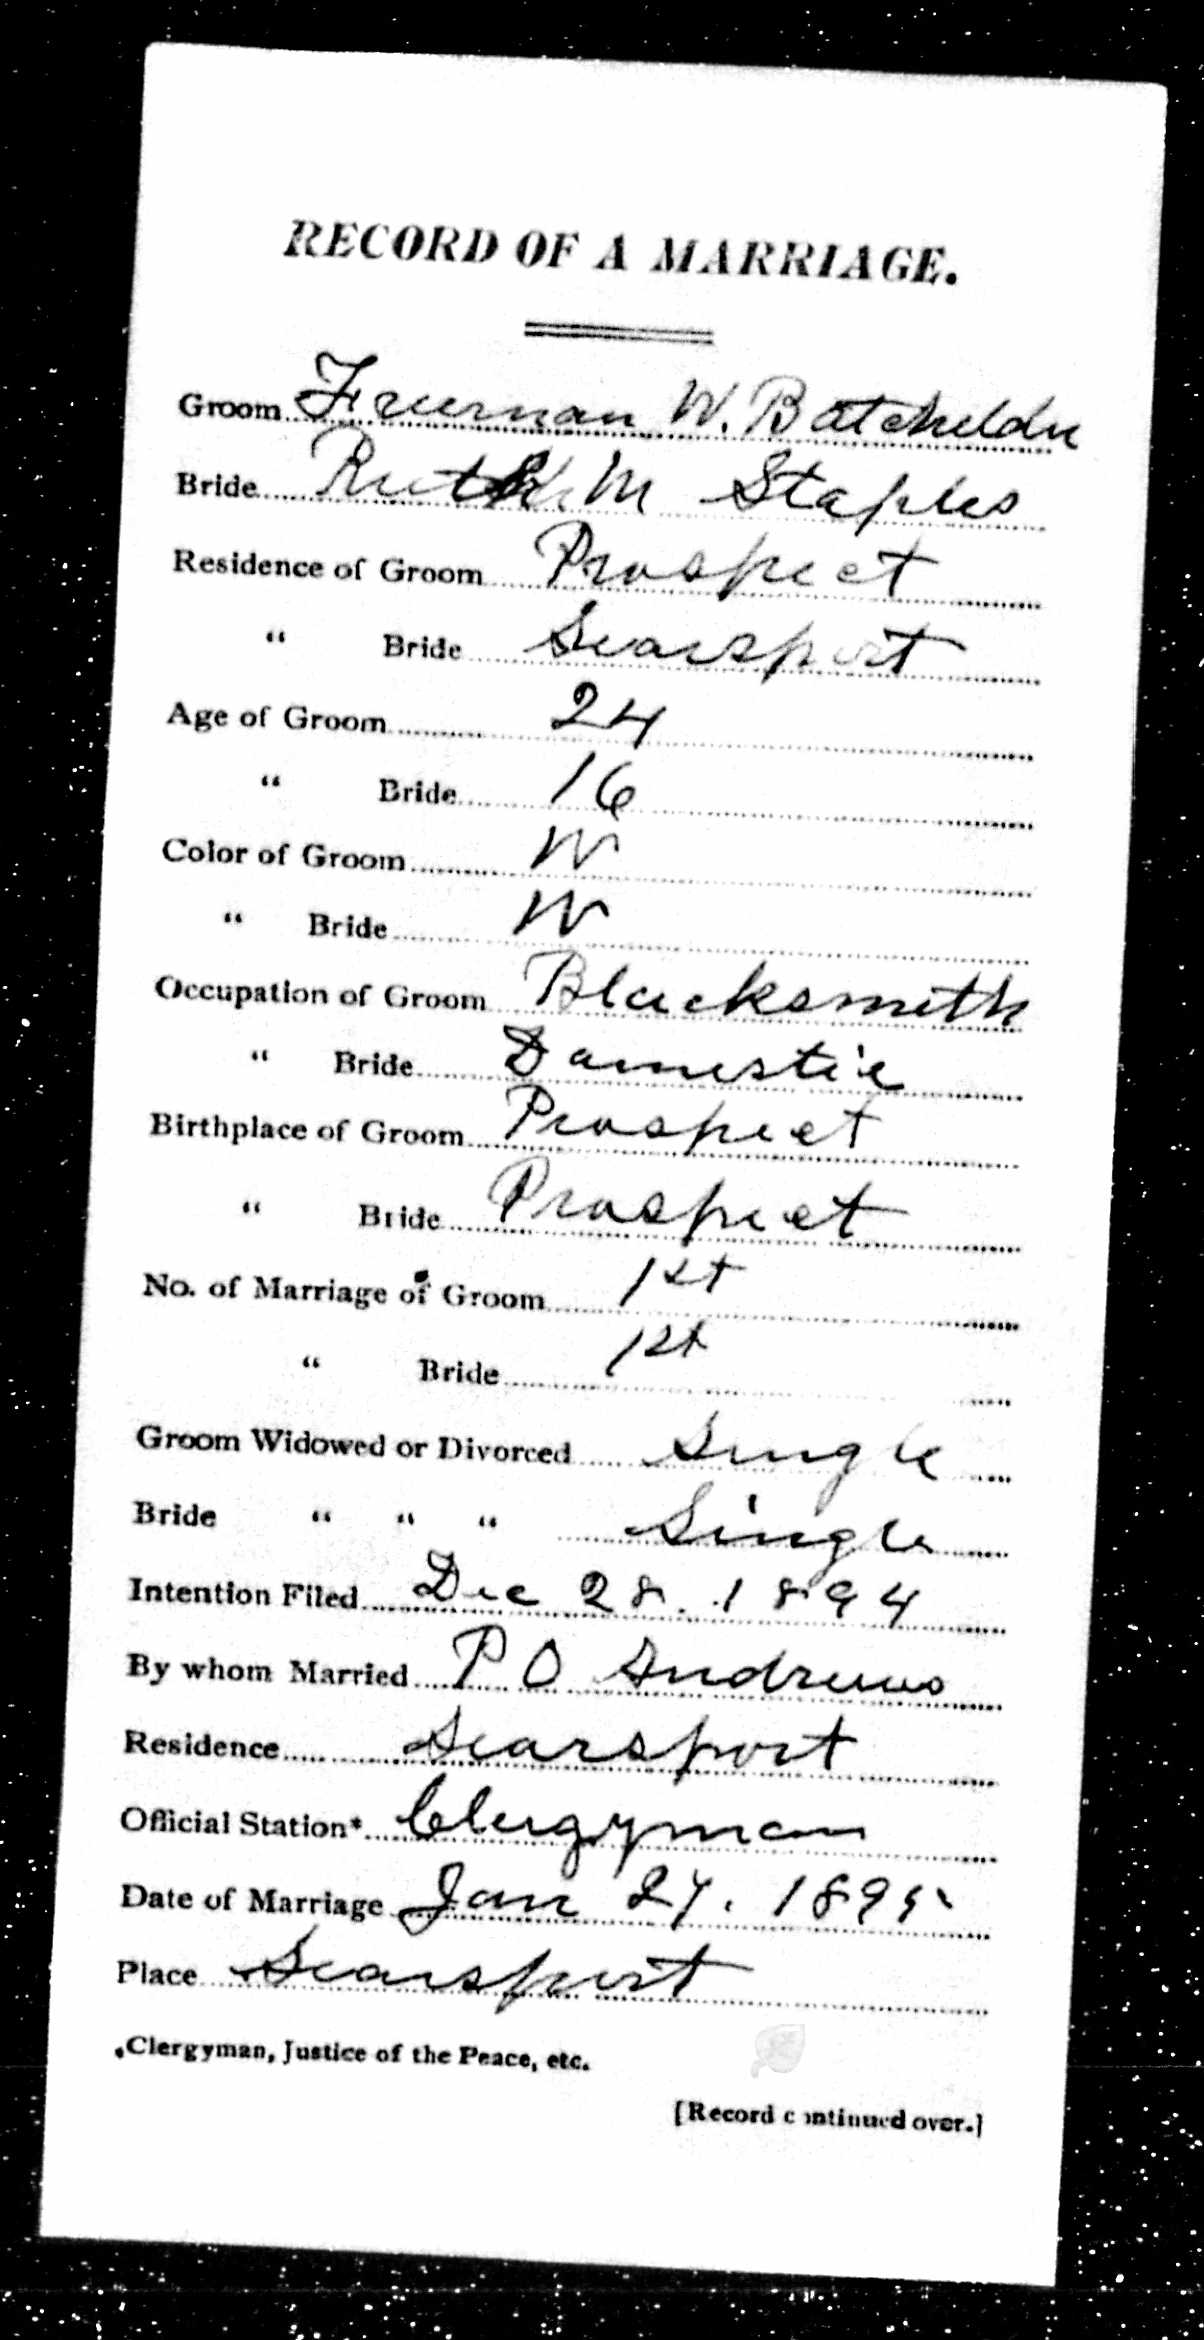 RECORD OF A MARRIAGE.
Groom Freeman W. Batchelder
Bride Ruth M Staples
Residence of Groom Prospect
" Bride Searsport
Age of Groom 24
" Bride 16
Color of Groom W
" Bride W
Occupation of Groom Blacksmith
" Bride Domestic
Birthplace of Groom Prospect
" Bride Prospect
No. of Marriage of Groom 1st
" Bride 1st
Groom Widowed or Divorced Single
Bride " " " Single
Intention Filed Dec 28. 1894
By whom Married P O Andrews
Residence Searsport
Official Station* Clergyman
Date of Marriage Jan 27. 1895
Place Searsport
*Clergyman, Justice of the Peace, etc.
[Record continued over.]